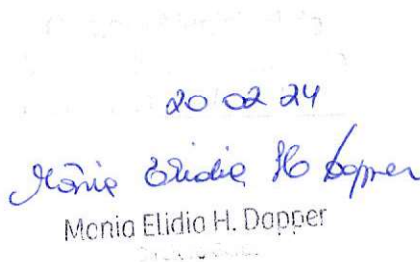 20 02 24
Mônia Elidia H Dapper
Monia Elidia H. Dapper